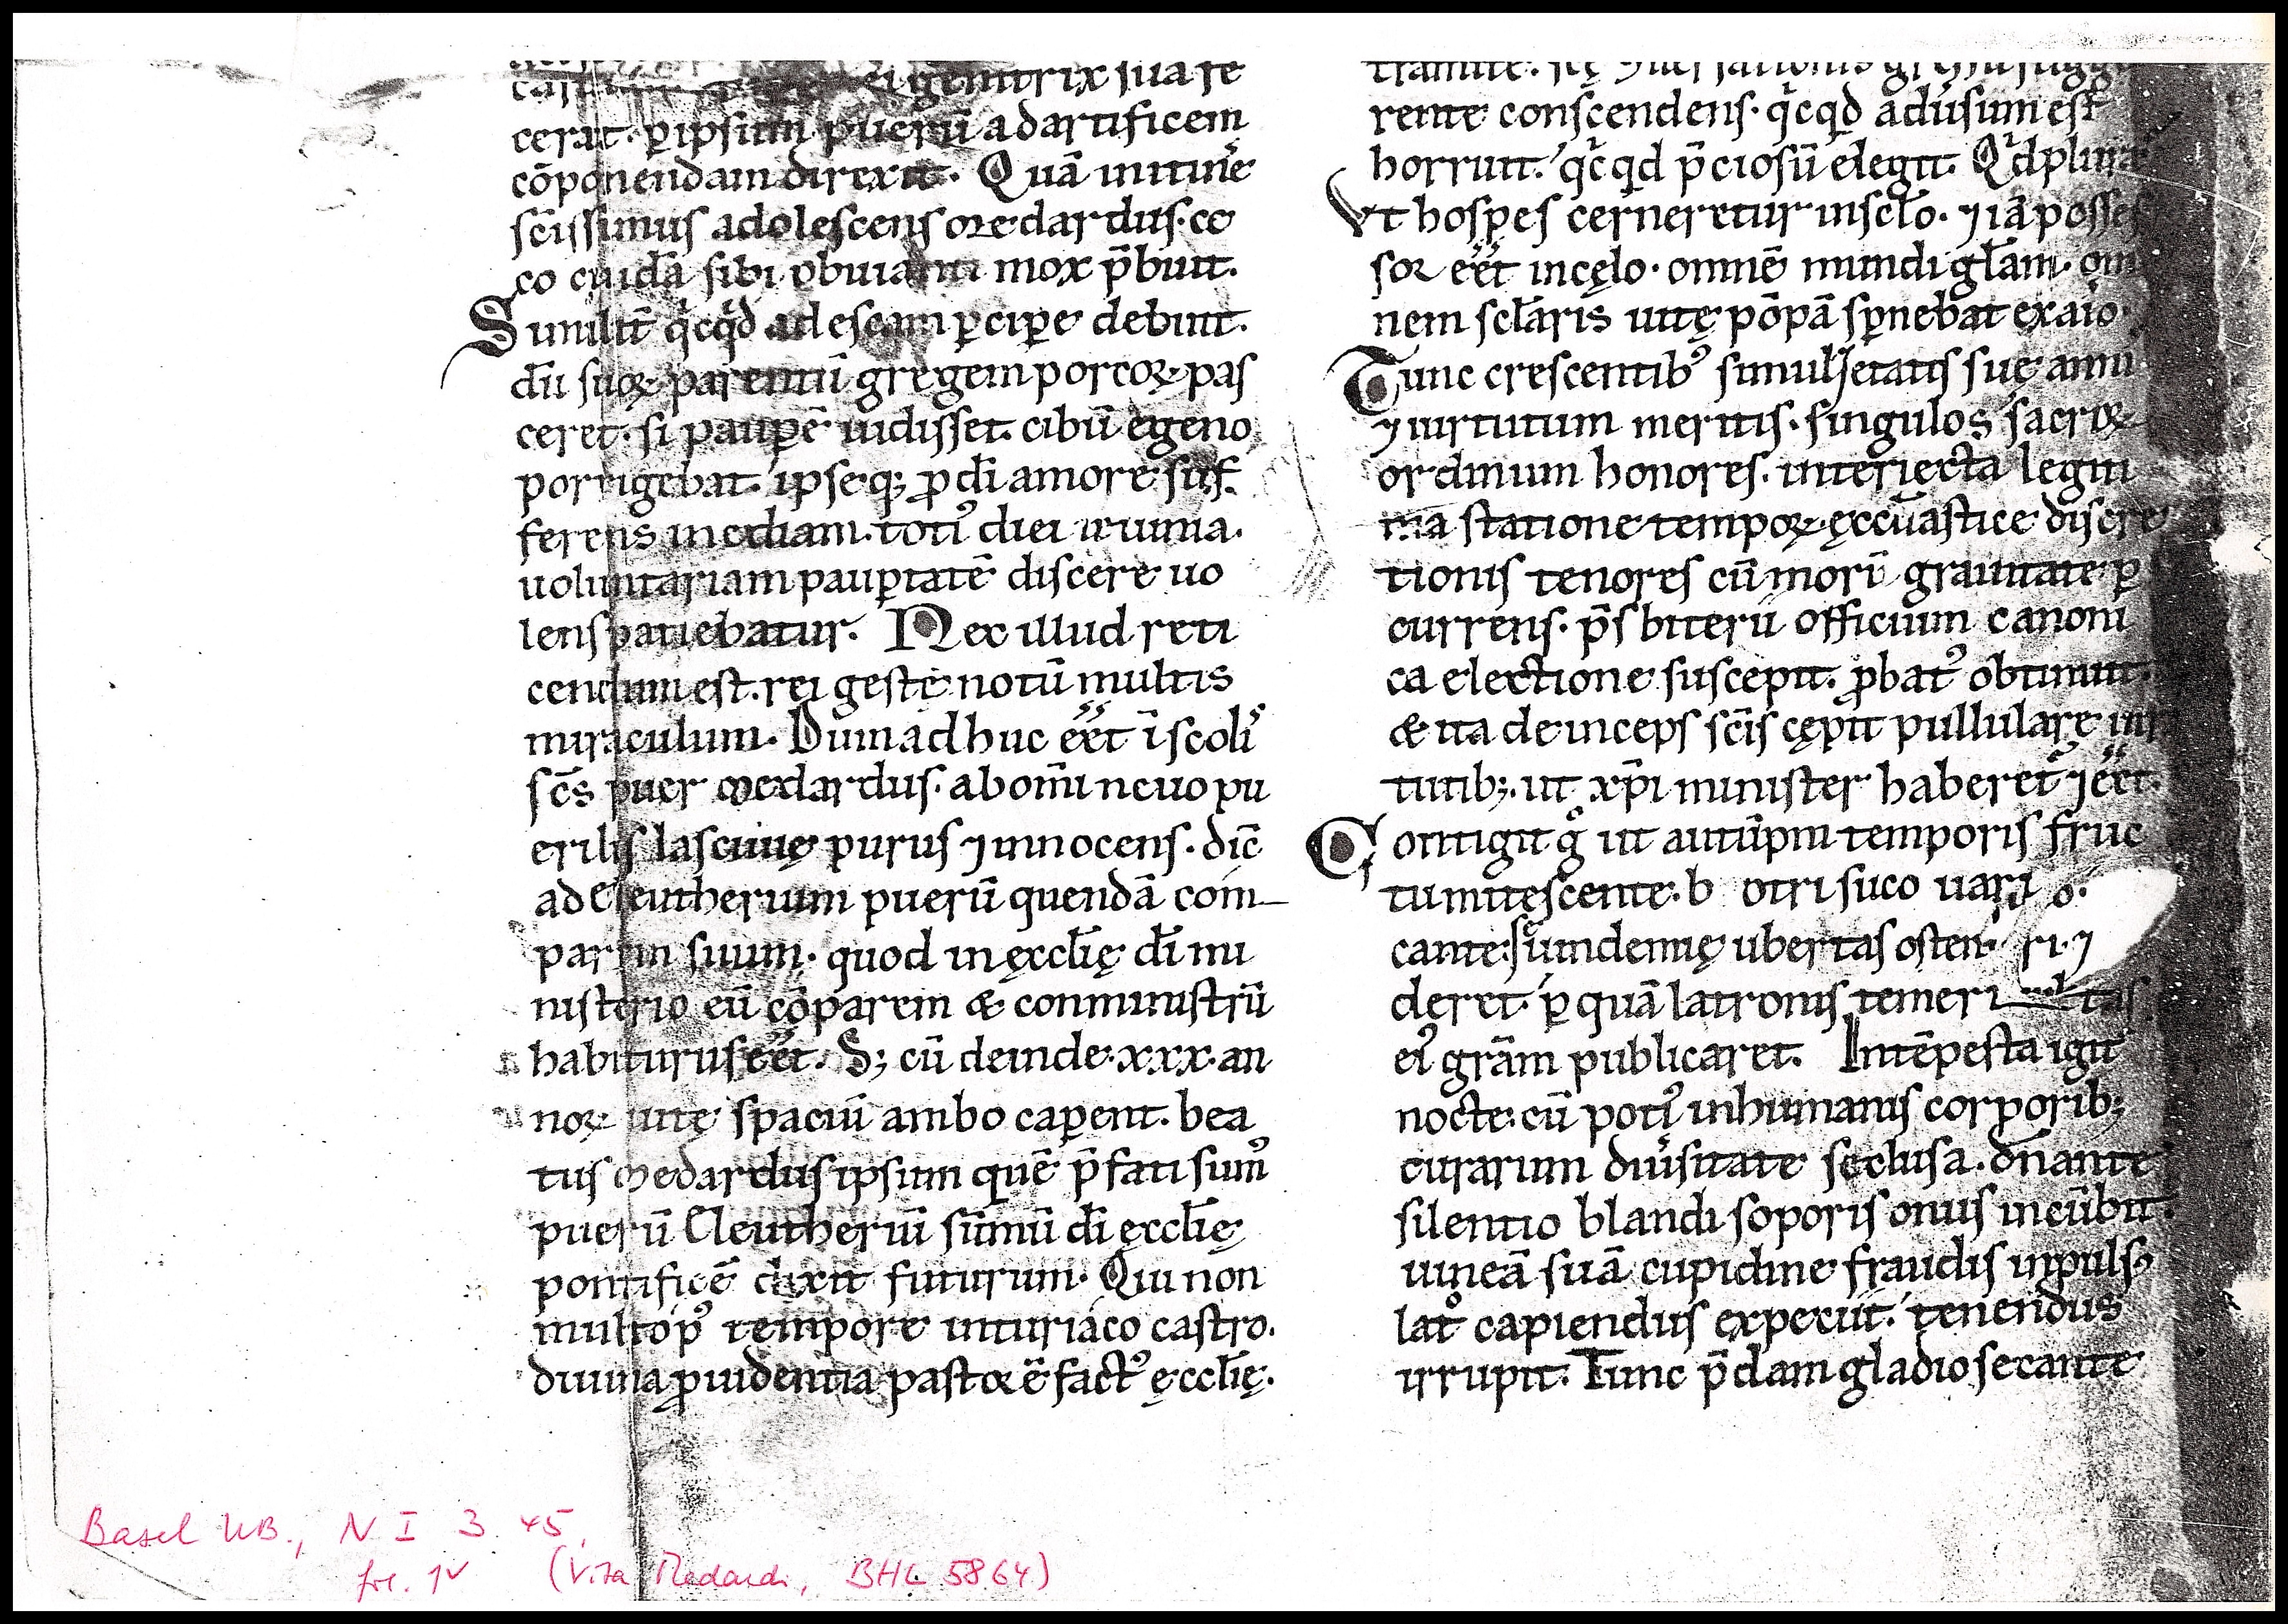 ei genitrix sua fe
cerat. p̱ ipsum puerū ad artificem
cōponendam direxit. Quā in itine᷒
sc̄issimus adolescens Medardus. ce
co cuidā sibi obuianti mox p̄buit.
Simılit̄ qͥcqͥd ad escam p̱cipe debuit.
dū suoꝝ parentū gregem porcoꝝ pas
ceret. si paup̱ē uidisset. cibū egeno
porrigebat. ipseq; ꝓ dī amore suf
ferens inediam. totꝰ diei ieiunia.
uoluntariam paup̱tatē discere uo
lens patiebatur. Nec illud reti
cendum est. rei gestę notū multis
miraculum. Dum adhuc eēt ī scolis
sc̄s puer Medardus. ab om̄i neuo pu
erilis lasciuię purus ⁊ innocens. dic̄
ad Eleutherium puerū quendā com
parem suum. quod in ęccłię dī mi
nisterio eū cōparem & conministrū
habiturus eēt. S; cū deinde .xxx. an
noꝝ uitę spaciū ambo cap̱ent. bea
tus Medardus ipsum quē p̄fati sumꝰ
puerū Eleutheriū sūmū dī ęccłię
pontificē dixit futurum. Qui non
multo pꝰ tempore in turiaco castro.
diuina ꝓuidentia pastor ē factꝰ ęccłię.
tramite.
rente conscendens. qͥcqͥd aduersum est
horruit. qͥcqͥd p̄ciosū elegit. Qͥ dp̱ lira
vt hospes cerneretur in scło. ⁊ iā posses
sor eēt in cęlo. omnē mundi głam. om
nem scłaris uitę pōpā sp̱nebat ex aīo.
Tunc crescentibꝰ simul ętatis suę annis
⁊ uirtutum meritis. singulos sacroꝝ
ordinum honores. interiecta legiti
ma statione tempoꝝ. ęccłiastice discre
tionis tenores cū morū grauitate p̱
currens. p̄sbiterii officium canoni
ca electione suscepit. ꝓbatꝰ obtinuit.
& ita deinceps sc̄is cępit pullulare uir
tutib;. ut xp̄i minister haberet᷒ ⁊ eēt.
Contigit gͦ ut autūpni temporis fruc
tu mitescente. b otri suco uari o.
cante. s uindemię ubertas osten. ri. ⁊
deret. p̱ quā latronis temeri tas
eiꝰ gram̄ publicaret. Intēpesta igit᷒
nocte. cū potiꝰ inhumanis corporib;
curarum diu᷒sitate seclusa. dn̄ante
silentio blandi soporis onus incūbit.
uineā suā cupidine fraudis inpulsꝰ
latͦ capiendus expetiit. tenendus
irrupit. Tunc p̄dam gladio secante
Basel UB., N I 3 45,
fol. 1v (Vita Medardi, BHL 5864)